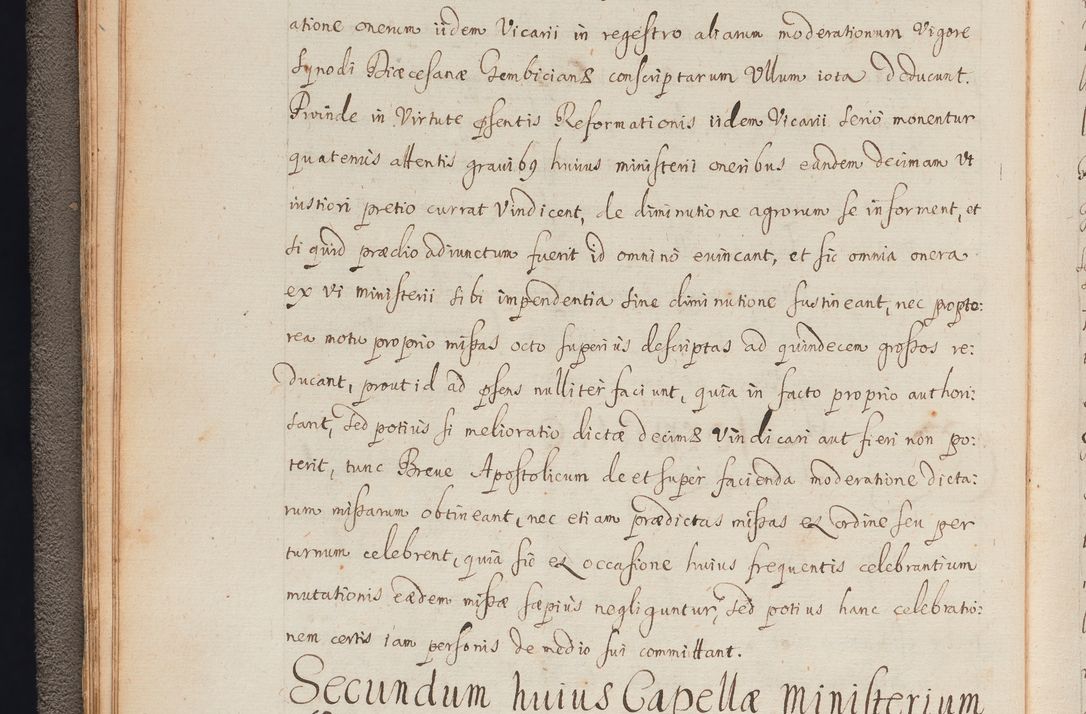 atione onerum iidem Vicarii in regestro aliarum moderationum Vigore
Synodi Diæcesanæ Gembicianæ conscriptarum Ullum iota deducunt.
Proinde in Virtute pñsentis Reformationis iidem Vicarii serio monentur
quatenus attentis gravibq huius ministerii oneribus eandem decimam Ut
iustiori pretio currat Vindicent, de diminutione agrorum se informent, et
si quid prædio adiunctum fuerit id omnino evincant, et sic omnia onera
ex vi ministerii sibi impendentia sine diminutione sustineant, nec propte:
rea motu proprio missas octo superius descriptas ad quindecem grossos re:
ducant, prout id ad pñsens nulliter faciunt, quia in facto proprio authori:
sant, sed potius si melioratio dictæ decimæ Vindicari aut fieri non po:
terit, tunc Breve Apostolicum de et super facienda moderatione dicta:
rum missarum obtineant, nec etiam prædictas missas ex ordine seu per
turnum celebrent, quia sic ex occasione huius frequentis celebrantium
mutationis eædem missæ sæpius negliguntur, sed potius hanc celebratio:
nem certis iam personis de medio sui committant.
Secundum huius Capellæ Ministerium